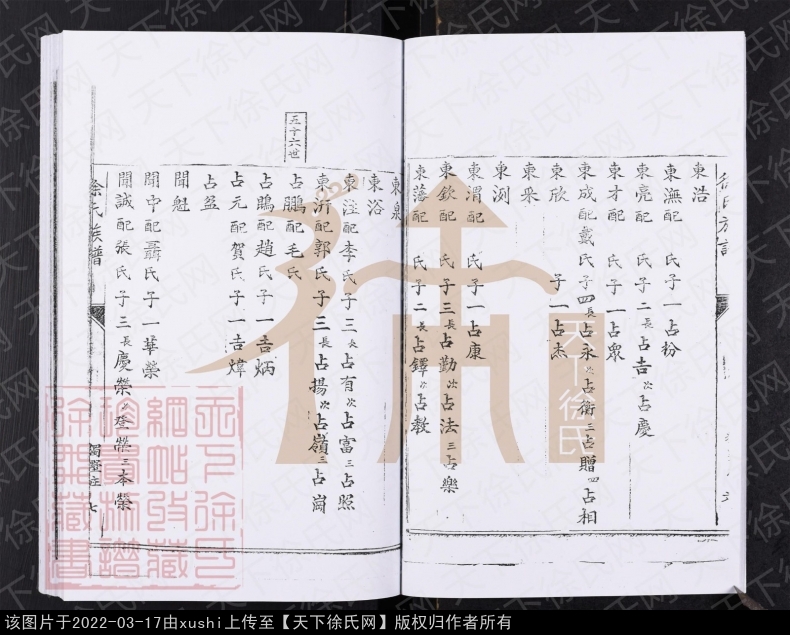 東浩
東潕配 氏子一占枌
東亮配 氏子二長占吉次占慶
東才配 氏子一占眾
東成配戴氏子四長占永次占衛三占贈四占相
東欣 子一占杰
東采
東洌
東渭配 氏子一占康
東欽配 氏子三長占勤次占法三占樂
東藩配 氏子二長占鐸次占教
東泉
東浴
東注配李氏子三長占有次占富三占照
東沂配郭氏子三長占揚次占嶺三占崗
三十六世
占鵬配毛氏
占鵾配趙氏子一吉炳
占元配賀氏子一吉煒
占盆
聞魁
聞中配聶氏子一華榮
聞誠配張氏子三長慶榮次登榮三本榮
徐氏族譜
七
天下徐氏
天下徐氏网
该图片于2022-03-17由xushi上传至【天下徐氏网】版权归作者所有